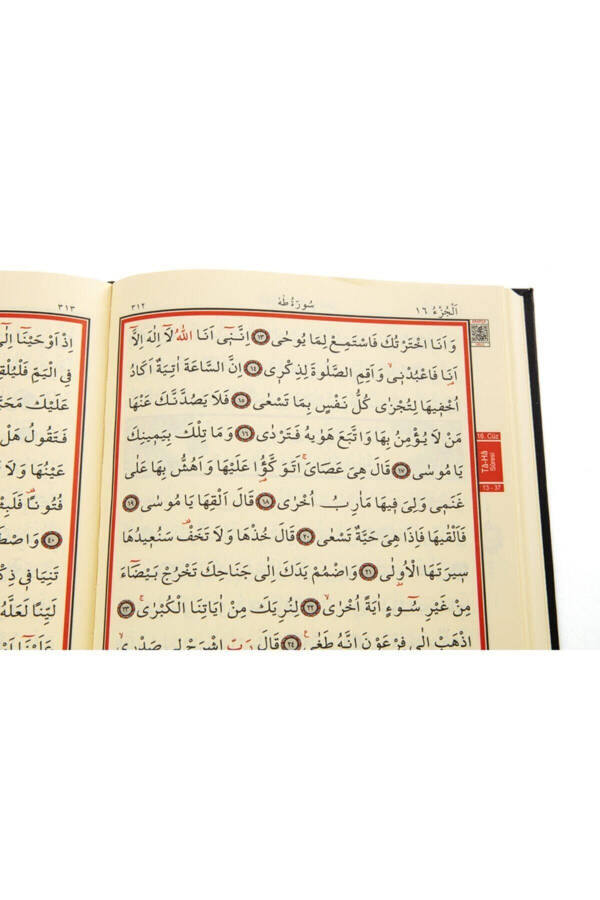 اَلْجُزْءُ ١٦ سُورَةُ طٰهٰ ٣١٢
وَاَنَا اخْتَرْتُكَ فَاسْتَمِعْ لِمَا يُوحٰى ﴿١٣﴾ اِنَّنٖٓى اَنَا اللّٰهُ لَٓا اِلٰهَ اِلَّٓا
اَنَا۬ فَاعْبُدْنٖى وَاَقِمِ الصَّلٰوةَ لِذِكْرٖى ﴿١٤﴾ اِنَّ السَّاعَةَ اٰتِيَةٌ اَكَادُ
اُخْفٖيهَا لِتُجْزٰى كُلُّ نَفْسٍ بِمَا تَسْعٰى ﴿١٥﴾ فَلَا يَصُدَّنَّكَ عَنْهَا
مَنْ لَا يُؤْمِنُ بِهَا وَاتَّبَعَ هَوٰيهُ فَتَرْدٰى ﴿١٦﴾ وَمَا تِلْكَ بِيَمٖينِكَ
يَا مُوسٰى ﴿١٧﴾ قَالَ هِىَ عَصَاىَۚ اَتَوَكَّؤُ۬ا عَلَيْهَا وَاَهُشُّ بِهَا عَلٰى
غَنَمٖى وَلِىَ فٖيهَا مَاٰرِبُ اُخْرٰى ﴿١٨﴾ قَالَ اَلْقِهَا يَا مُوسٰى ﴿١٩﴾
فَاَلْقٰيهَا فَاِذَا هِىَ حَيَّةٌ تَسْعٰى ﴿٢٠﴾ قَالَ خُذْهَا وَلَا تَخَفْ۠ سَنُعٖيدُهَا
سٖيرَتَهَا الْاُو۫لٰى ﴿٢١﴾ وَاضْمُمْ يَدَكَ اِلٰى جَنَاحِكَ تَخْرُجْ بَيْضَٓاءَ
مِنْ غَيْرِ سُٓوءٍ اٰيَةً اُخْرٰىۙ ﴿٢٢﴾ لِنُرِيَكَ مِنْ اٰيَاتِنَا الْكُبْرٰىۚ ﴿٢٣﴾
اِذْهَبْ اِلٰى فِرْعَوْنَ اِنَّهُ طَغٰى ﴿٢٤﴾ قَالَ رَبِّ اشْرَحْ لٖى صَدْرٖىۙ
16. Cüz
Tâ-Hâ
Sûresi
13 - 37
٣١٣
اِذْ اَوْحَيْنَٓا اِلٰٓى
فِى الْيَمِّ فَلْيُلْقِهِ
عَلَيْكَ مَحَبَّةً
فَتَقُولُ هَلْ
عَيْنُهَا وَلَا
فُتُونًا فَلَبِثْتَ
﴿٤٠﴾
تَنِيَا فٖى ذِكْرٖى
لَيِّنًا لَعَلَّهُ
عَلَيْنَٓا